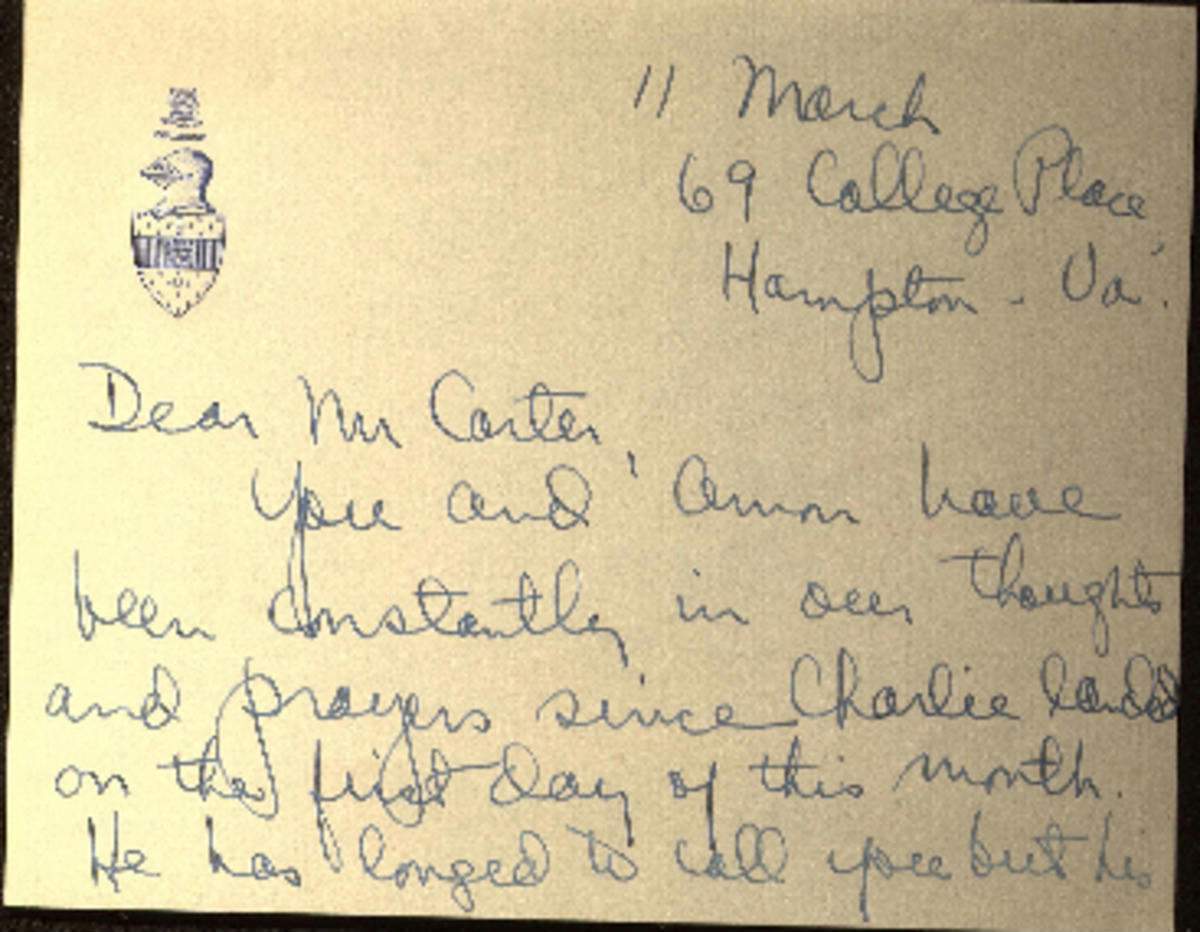 11 March
69 College Place
Hampton - Va.
Dear Mr Carter,
You and Amon have
been constantly in our thoughts
and prayers since Charlie landed
on the first day of this month.
He has longed to call you but his